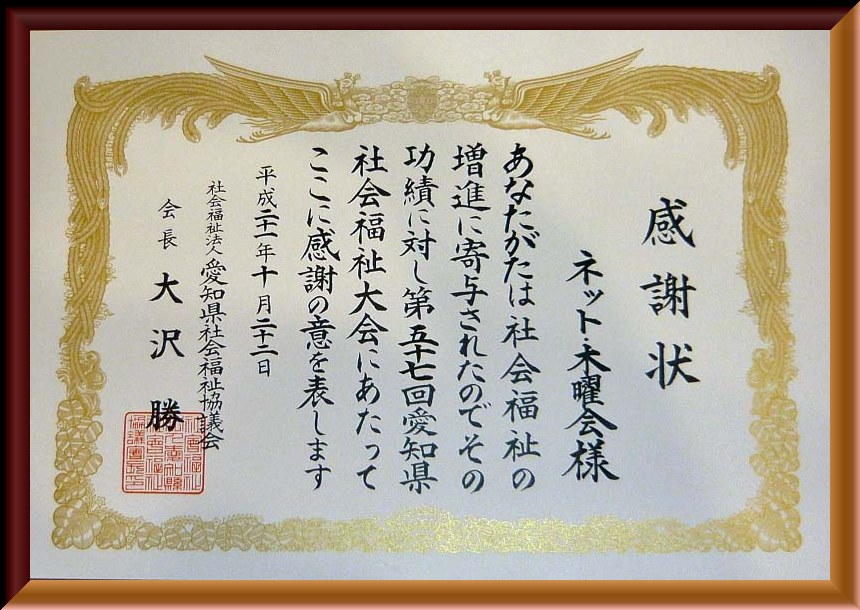 感謝状
ネット・木曜会様
あなたがたは社会福祉の
増進に寄与されたのでその
功績に対し第五十七回愛知県
社会福祉大会にあたって
ここに感謝の意を表します
平成二十一年十月二十二日
社会福祉法人 愛知県社会福祉協議会
会長 大沢勝